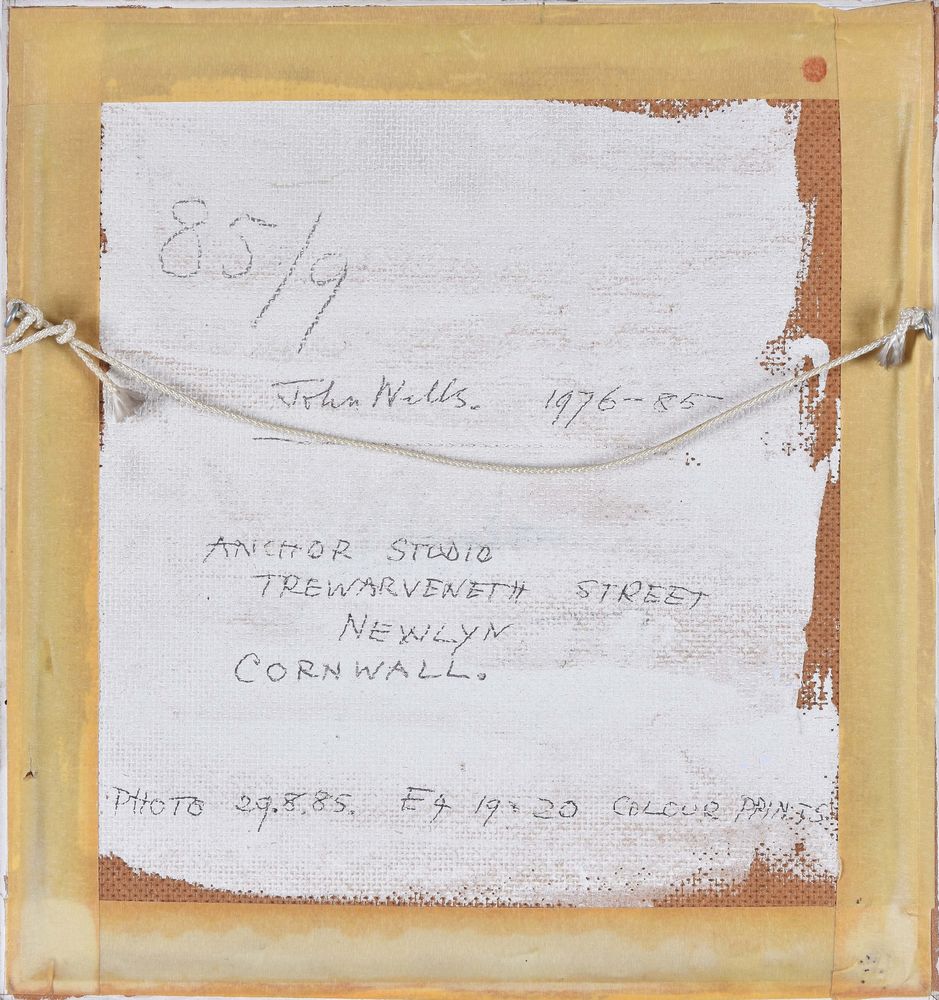 85/9
John Wells. 1976-85
ANCHOR STUDIO
TREWARVENETH STREET
NEWLYN
CORNWALL.
PHOTO 29.8.85. E4 19-20 COLOUR PRINTS